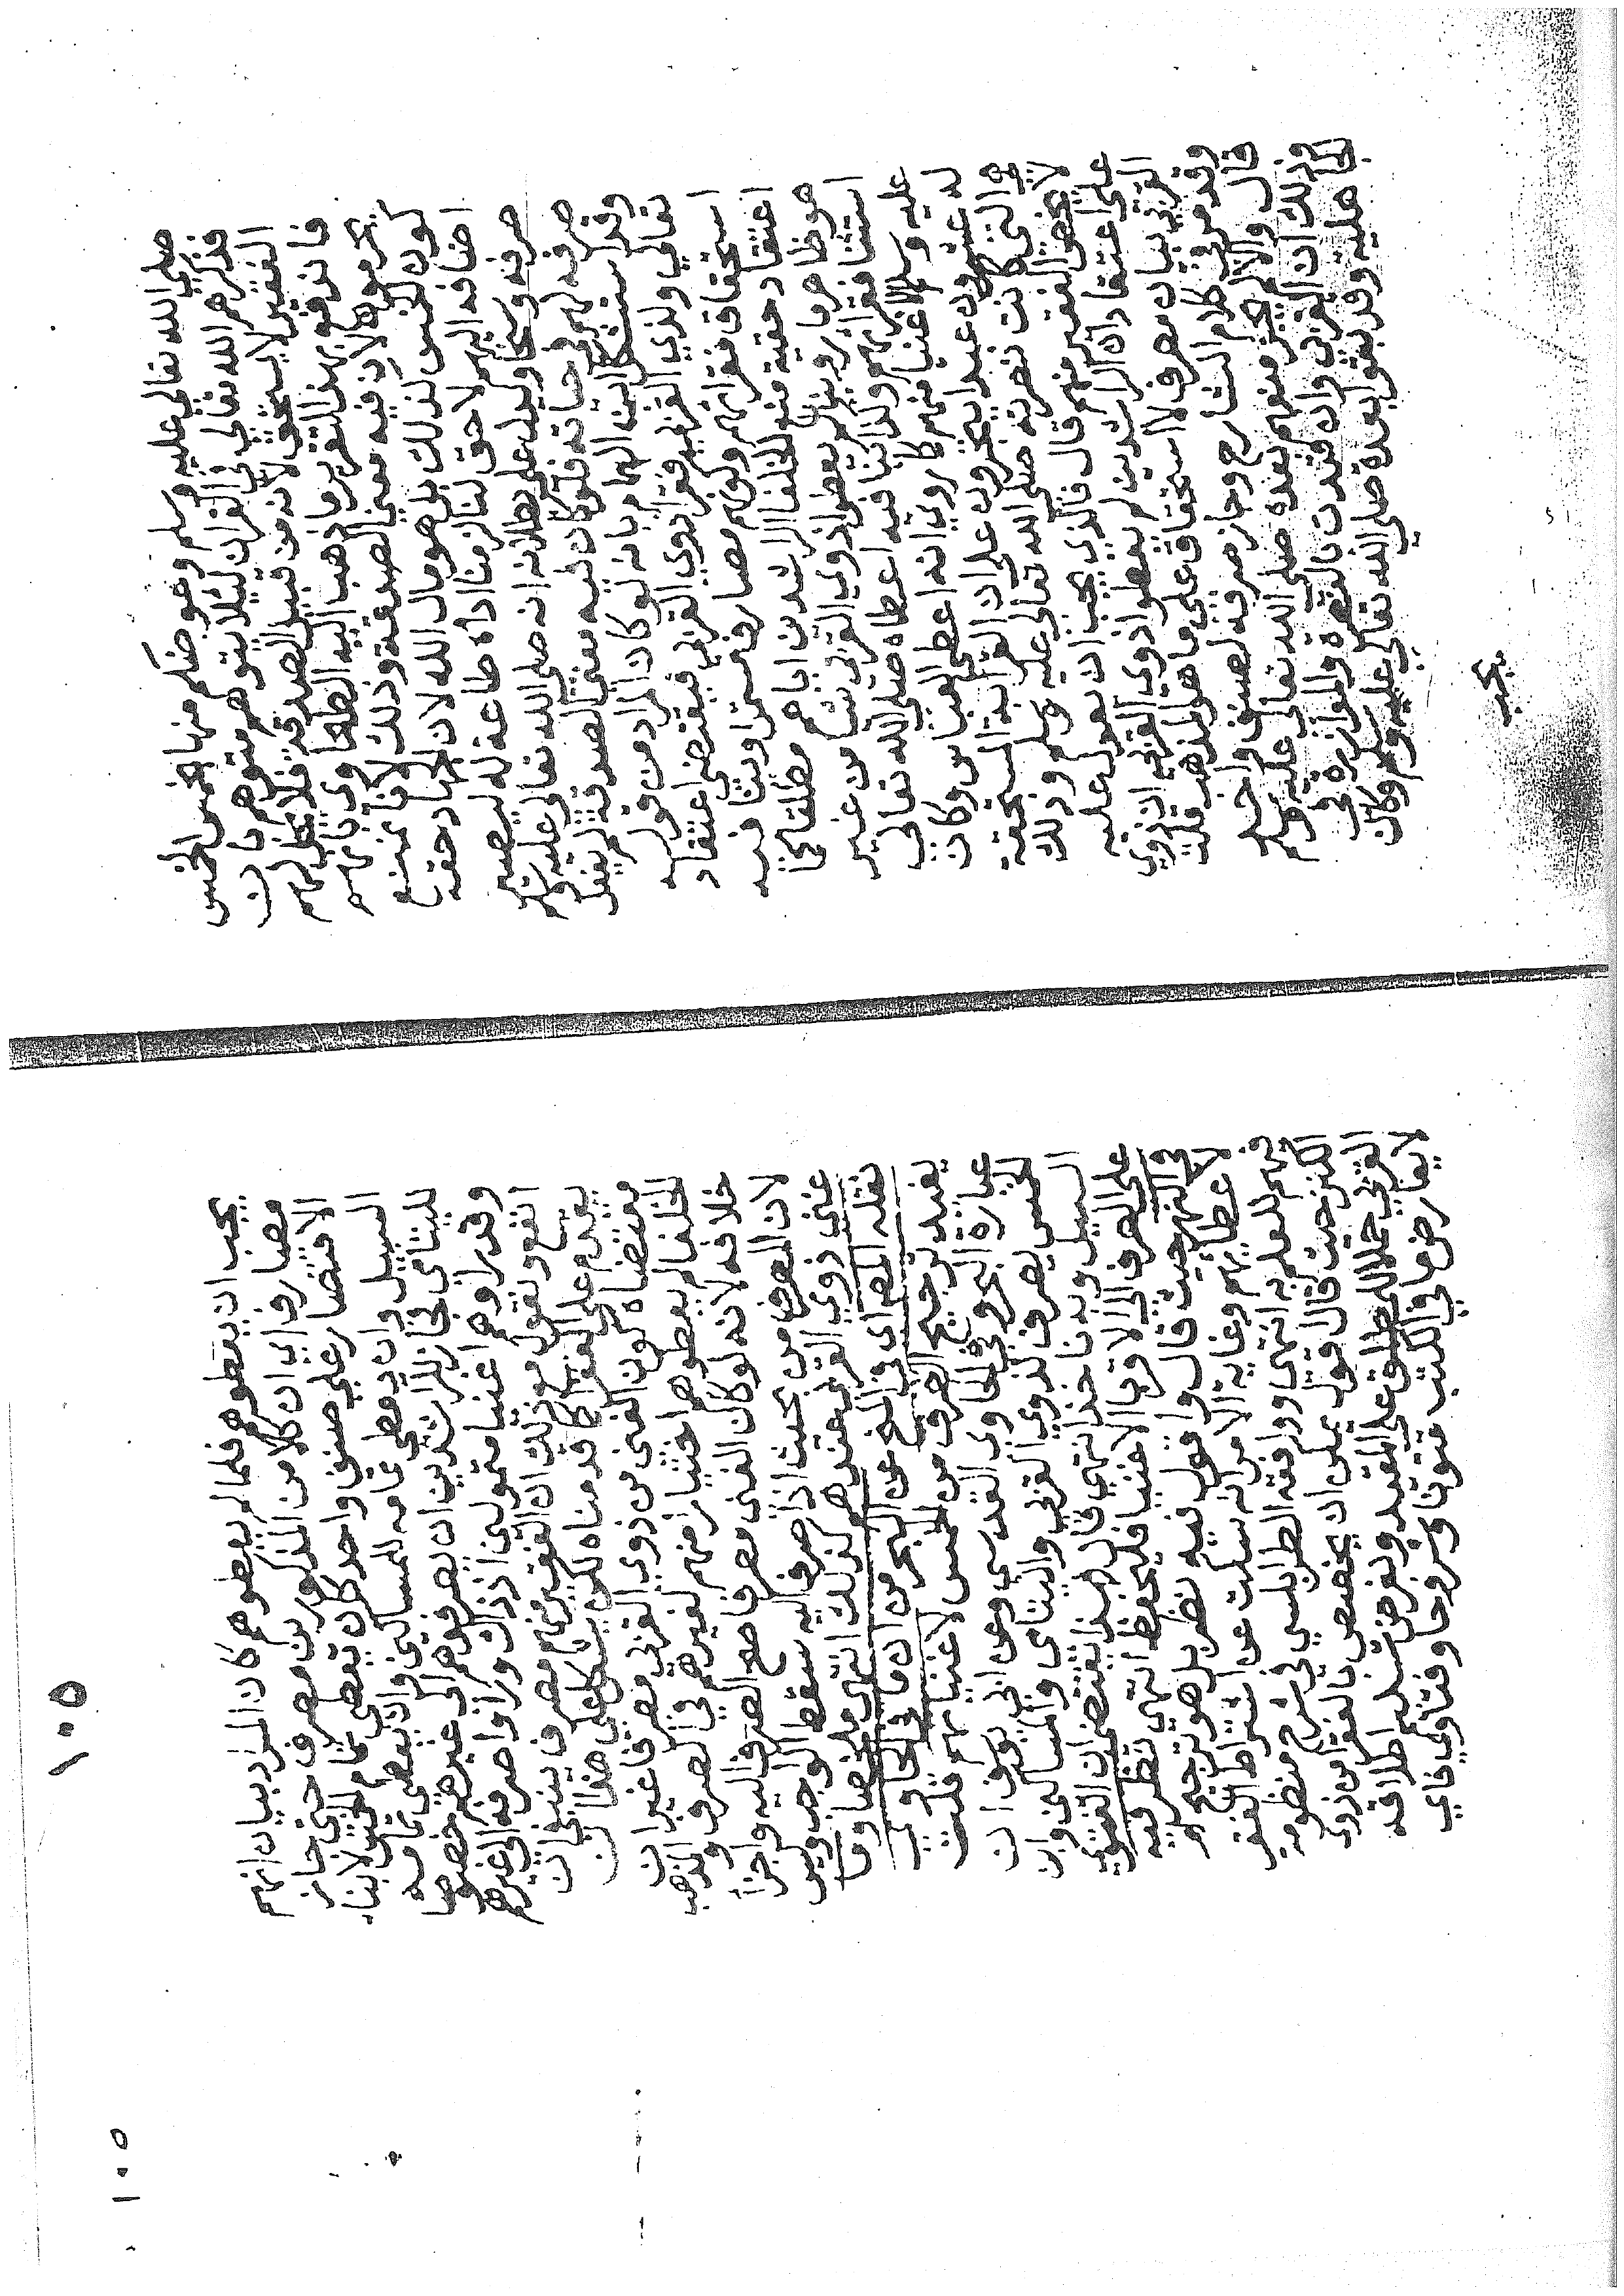 صلى الله تعالى عليه وسلم وعوضكم منها بخمس الخمس
فذكرهم الله تعالى في القران لئلا يتوهم متوهم بان
الفقير لا يستحق لانه من قبيل الصدقة فلا يحل لهم
فاندفع بهذا التقرير ما ذهب اليه الطحاوي بانهم
يحرمون لان فيه معنى الصدقة وذلك لانا نمنع
كون الخمس كذلك بل هو مال الله لان الجهاد حقه
اضافه اليهم لا حق لنا لزمنا اداه طاعة له ليصير
صرفه على بطلانه انه صلى الله تعالى عليه وسلم
صرفه لهم في حياته فلو كان فيه معنى الصدقة لم يفعل
وقد استشكل ابن الهمام بانه لو كان المراد من قوله
تعالى ولذي القربى فقرا ذوي القربى فيقتضي اعتقاد
استحقاق فقرائهم وكونهم مصارف مستمرا وينافيه
اعتقاد حقية منع الخلفا الراشدين اياهم مطلقا كما
هو ظاهر ما روينا لم يعطوا ذوي القربى شيا من غير
استثنا فقرائهم وكذا ينافيه اعطاه صلى الله تعالى
عليه وسلم الاغنيا منهم كما روي انه اعطى العباس وكان
له عشرون عبدا يتجرون على ان القرابة المستحقة
هي التي كانت نصرته صلى الله تعالى عليه وسلم وذلك
لا يخص الفقير منهم قال فالذي يجب ان يعول عليه
على اعتقاد ان الراشدين لم يعطوا ذوي القربى ان ذوي
القربى بيان مصرف لا استحقاق على ما هو المذهب قلت
وقد مر في كلام الشارح وجاز صرفه لصنف واحد
قال والا لم يجز منعهم بعده صلى الله تعالى عليه وسلم
وذلك ان القربى وان قيدت بالنصرة والموازرة في
الجاهلية وقد بقوا بعده صلى الله تعالى عليه وسلم وكان
يجب
١٠٥
يجب ان يعطوهم فلما لم يعطوهم كان المراد بيان انهم
مصارف اي ان كلا من المذكورين مصرف حتى جاز
الاقتصار على صنف واحد كان يعطي تمام الخمس لابناء
السبيل وان يعطي تمامه للمساكين وان يعطي تمامه
لليتامى فجاز للراشدين ان يصرفوه الى غيرهم خصوصا
وقد راوهم اغنيا متمولين اذ ذاك وراوا صرفه الى غيرهم
انفع ويقول مع ذلك ان الفقير منهم مصرف ينبغي ان
يقدم على الفقرا كما قدمناه لكن يشكل على هذا ان
مقتضاه كون الغني من ذوي القربى مصرفا غير ان
الخلفا لم يعطوهم اختيارا منهم لغيرهم في الصرف والمذهب
خلافه لانه لو كان الغني مصرفا صح الصرف اليه واجزا
لان المصرف من بحيث اذا صرف اليه سقط الوجوب وليس
غني ذوي القربى عندهم كذلك انتهى ملخصا وما
نقله المص اي في المنح عن البحر من ان ما في الحاوي
يفيد ترجيح الصرف من الخمس لاغنيائهم قلت
عبارة البحر وفي الحاوي القدسي وعن ابي يوسف ان
الخمس يصرف لذوي القربى واليتامى والمساكين وابن
السبيل وبه ناخذ انتهى قال هذا يقتضي ان الفتوى
على الصرف الى الاقربا الاغنيا فليحفظ انتهى نظر فيه
في النهر حيث قال واقول فيه نظر بل هو ترجيح
لاعطائهم وغاية الامر انه سكت عن اشتراط الفقر
فيهم للعلم به انتهى ووافقه الطرابلسي في شرح منظومة
الكنز حيث قال قلت يمكن ان يخصص بالفقرا من ذوي
القربى حملا للمطلق على المقيد وبفرض تسليم اطلاقه
لا يعارض ما في الكتب متونا وشروحا وفتاوي فاي
١٠٥